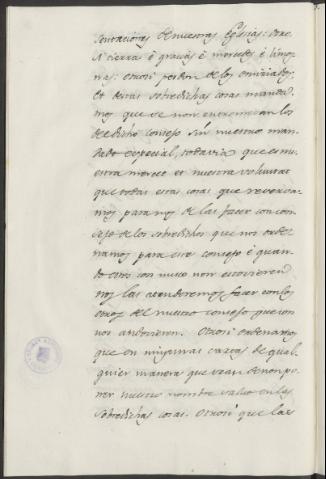 sentaciones de nuestras Eglesias: otro
si tierra é gracias é mercedes é limos
nas: otrosi perdon de los omiciados.
Et destas sobredichas cosas manda
mos que se non entremetan los
del dicho consejo sin nuestro man
dado especial, todavia que es nu
estra merced et nuestra voluntat
que todas estas cosas que reserva
mos para nos de las facer con con
sejo de los sobredichos que nos orde
namos para este consejo é quan
do estos con nusco non estovieren
nos las atenderemos facer con los
otros del nuestro consejo que con
nos andovieren. Otrosi ordenamos
que en ningunas cartas de qual
quier manera que sean de non po
ner nuestro nombre salvo en las
sobredichas cosas. Otrosi que las